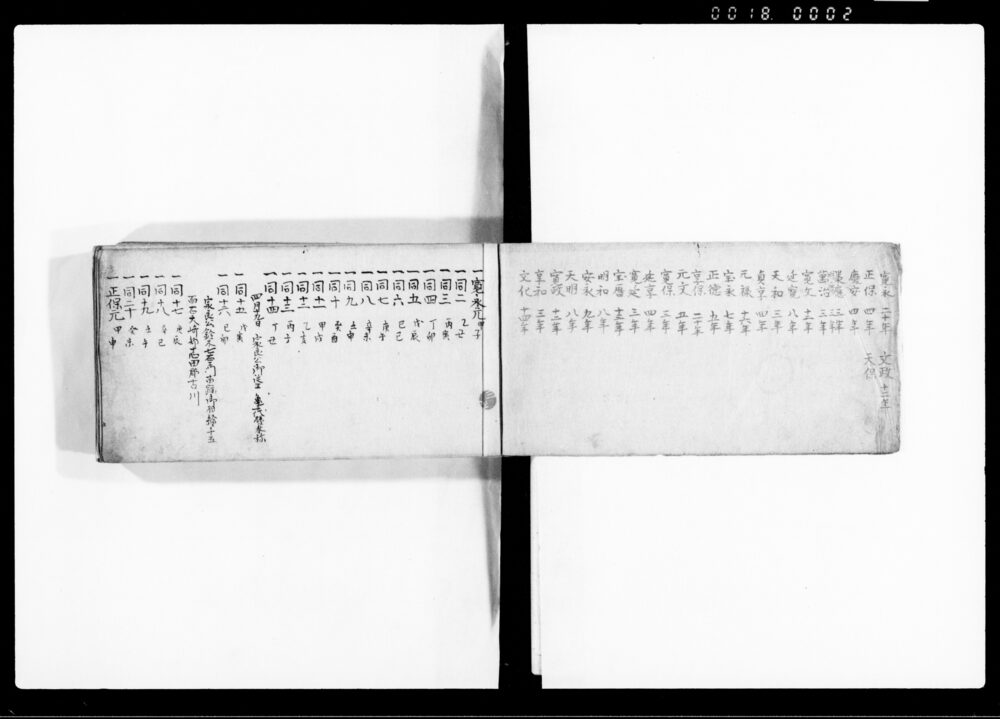 0018. 0002
寛永 二十年 文政 十二年
正保 四年 天保
慶安 四年
承應 三年
萬治 三年
寛文 十二年
延寶 八年
天和 三年
貞享 四年
元禄 十六年
宝永 七年
正徳 五年
享保 二十年
元文 五年
寛保 三年
延享 四年
寛延 三年
宝暦 十三年
明和 八年
安永 九年
天明 八年
寛政 十二年
享和 三年
文化 十四年
一寛永元 甲子
一同二 乙丑
一同三 丙寅
一同四 丁卯
一同五 戊辰
一同六 己巳
一同七 庚午
一同八 辛未
一同九 壬申
一同十 癸酉
一同十一 甲戌
一同十二 乙亥
一同十三 丙子
一同十四 丁丑
四月九日
一同十五 戊寅
一同十六 己卯
一同十七 庚辰
一同十八 辛巳
一同十九 壬午
一同二十 癸未
一正保元 甲申